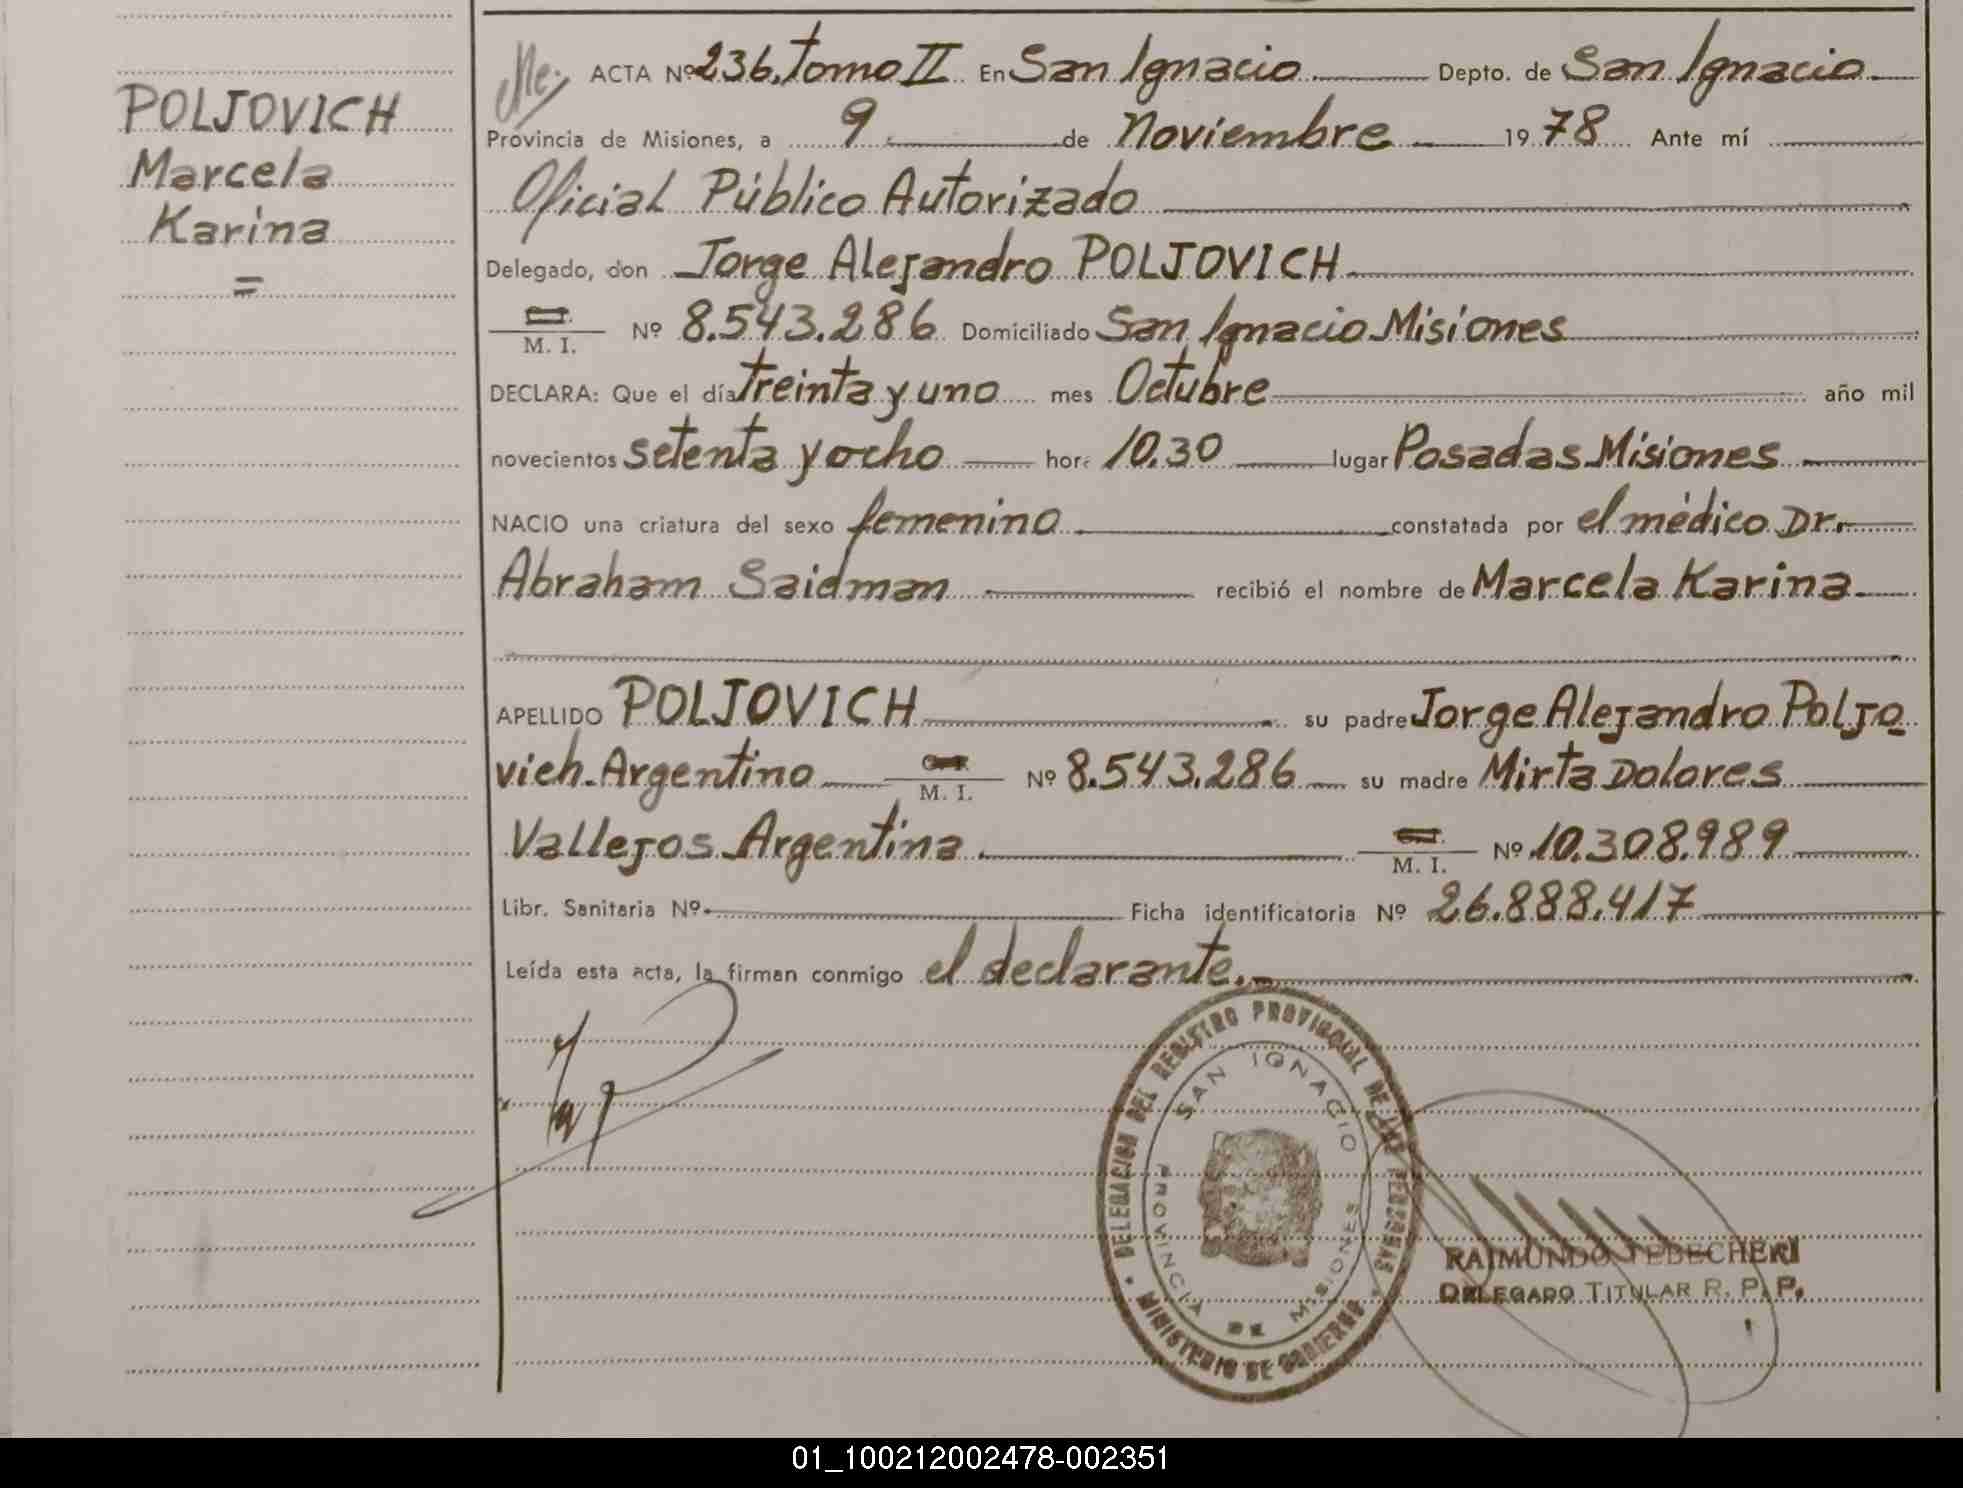 POLJOVICH
Marcela
Karina
=
ACTA Nº 236. tomo II En San Ignacio Depto. de San Ignacio
Provincia de Misiones, a 9 de Noviembre 1978 Ante mí
Oficial Público Autorizado
Delegado, don Jorge Alejandro POLJOVICH
M. I. Nº 8.543.286 Domiciliado San Ignacio Misiones
DECLARA: Que el día treinta y uno mes Octubre año mil
novecientos setenta y ocho hora 10.30 lugar Posadas Misiones
NACIO una criatura del sexo femenino constatada por el médico Dr.
Abraham Saidman recibió el nombre de Marcela Karina
APELLIDO POLJOVICH su padre Jorge Alejandro Poljo
vich. Argentino M. I. Nº 8.543.286 su madre Mirta Dolores
Vallejos Argentina M. I. Nº 10.308.989
Libr. Sanitaria Nº Ficha identificatoria Nº 26.888.417
Leída esta acta, la firman conmigo el declarante.
DELEGACION DEL REGISTRO PROVINCIAL DE LAS PERSONAS
SAN IGNACIO
PROVINCIA DE MISIONES
MINISTERIO DE GOBIERNO
RAIMUNDO TEBECHERI
DELEGADO TITULAR R. P. P.
01_100212002478-002351